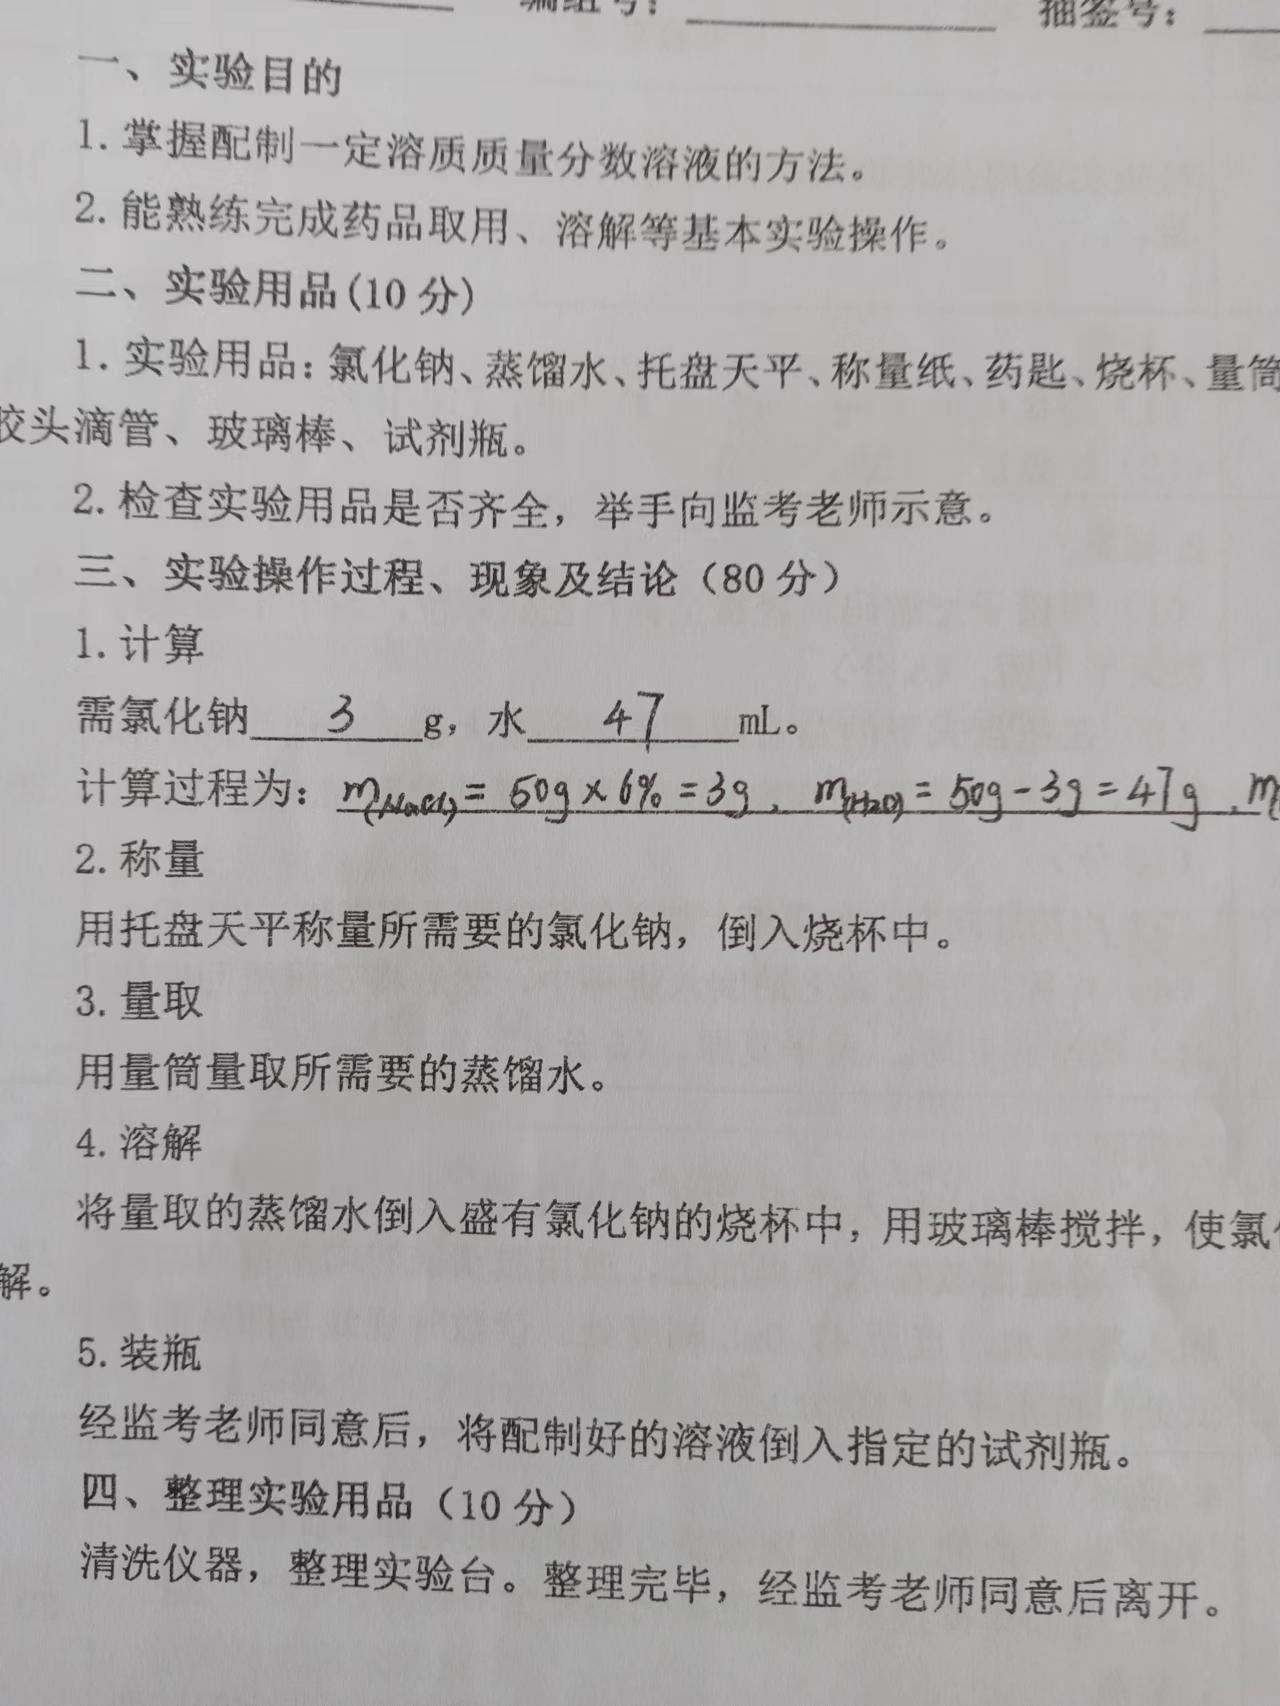 编组号： 抽签号：
一、实验目的
1. 掌握配制一定溶质质量分数溶液的方法。
2. 能熟练完成药品取用、溶解等基本实验操作。
二、实验用品(10 分)
1. 实验用品：氯化钠、蒸馏水、托盘天平、称量纸、药匙、烧杯、量筒
胶头滴管、玻璃棒、试剂瓶。
2. 检查实验用品是否齐全，举手向监考老师示意。
三、实验操作过程、现象及结论（80 分）
1. 计算
需氯化钠 3 g，水 47 mL。
计算过程为：m(NaCl) = 50g × 6% = 3g . m(H2O) = 50g - 3g = 47g . m
2. 称量
用托盘天平称量所需要的氯化钠，倒入烧杯中。
3. 量取
用量筒量取所需要的蒸馏水。
4. 溶解
将量取的蒸馏水倒入盛有氯化钠的烧杯中，用玻璃棒搅拌，使氯
解。
5. 装瓶
经监考老师同意后，将配制好的溶液倒入指定的试剂瓶。
四、整理实验用品（10 分）
清洗仪器，整理实验台。整理完毕，经监考老师同意后离开。